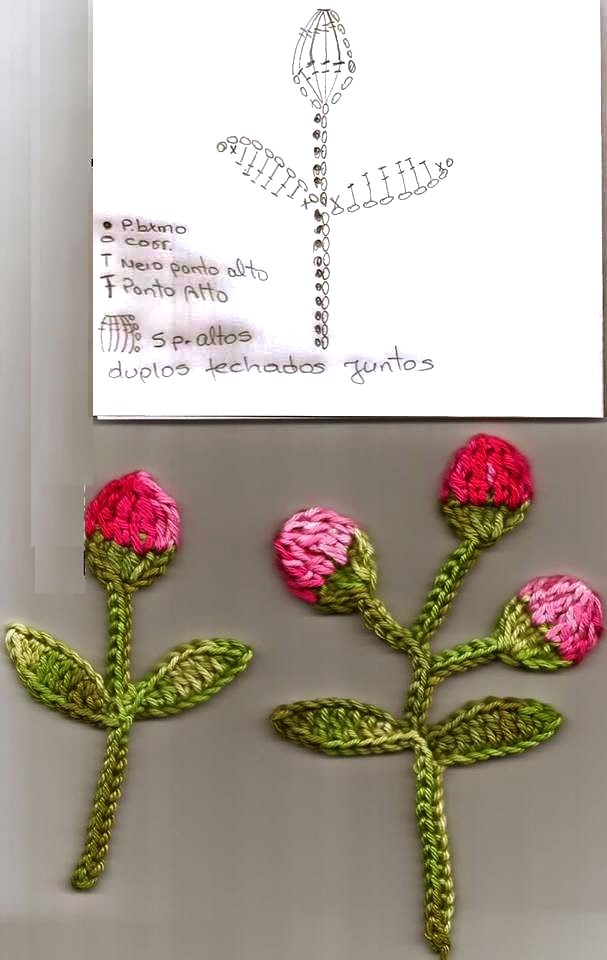 P.bxmo
corr.
Meio ponto alto
Ponto Alto
5 p. altos
duplos fechados juntos